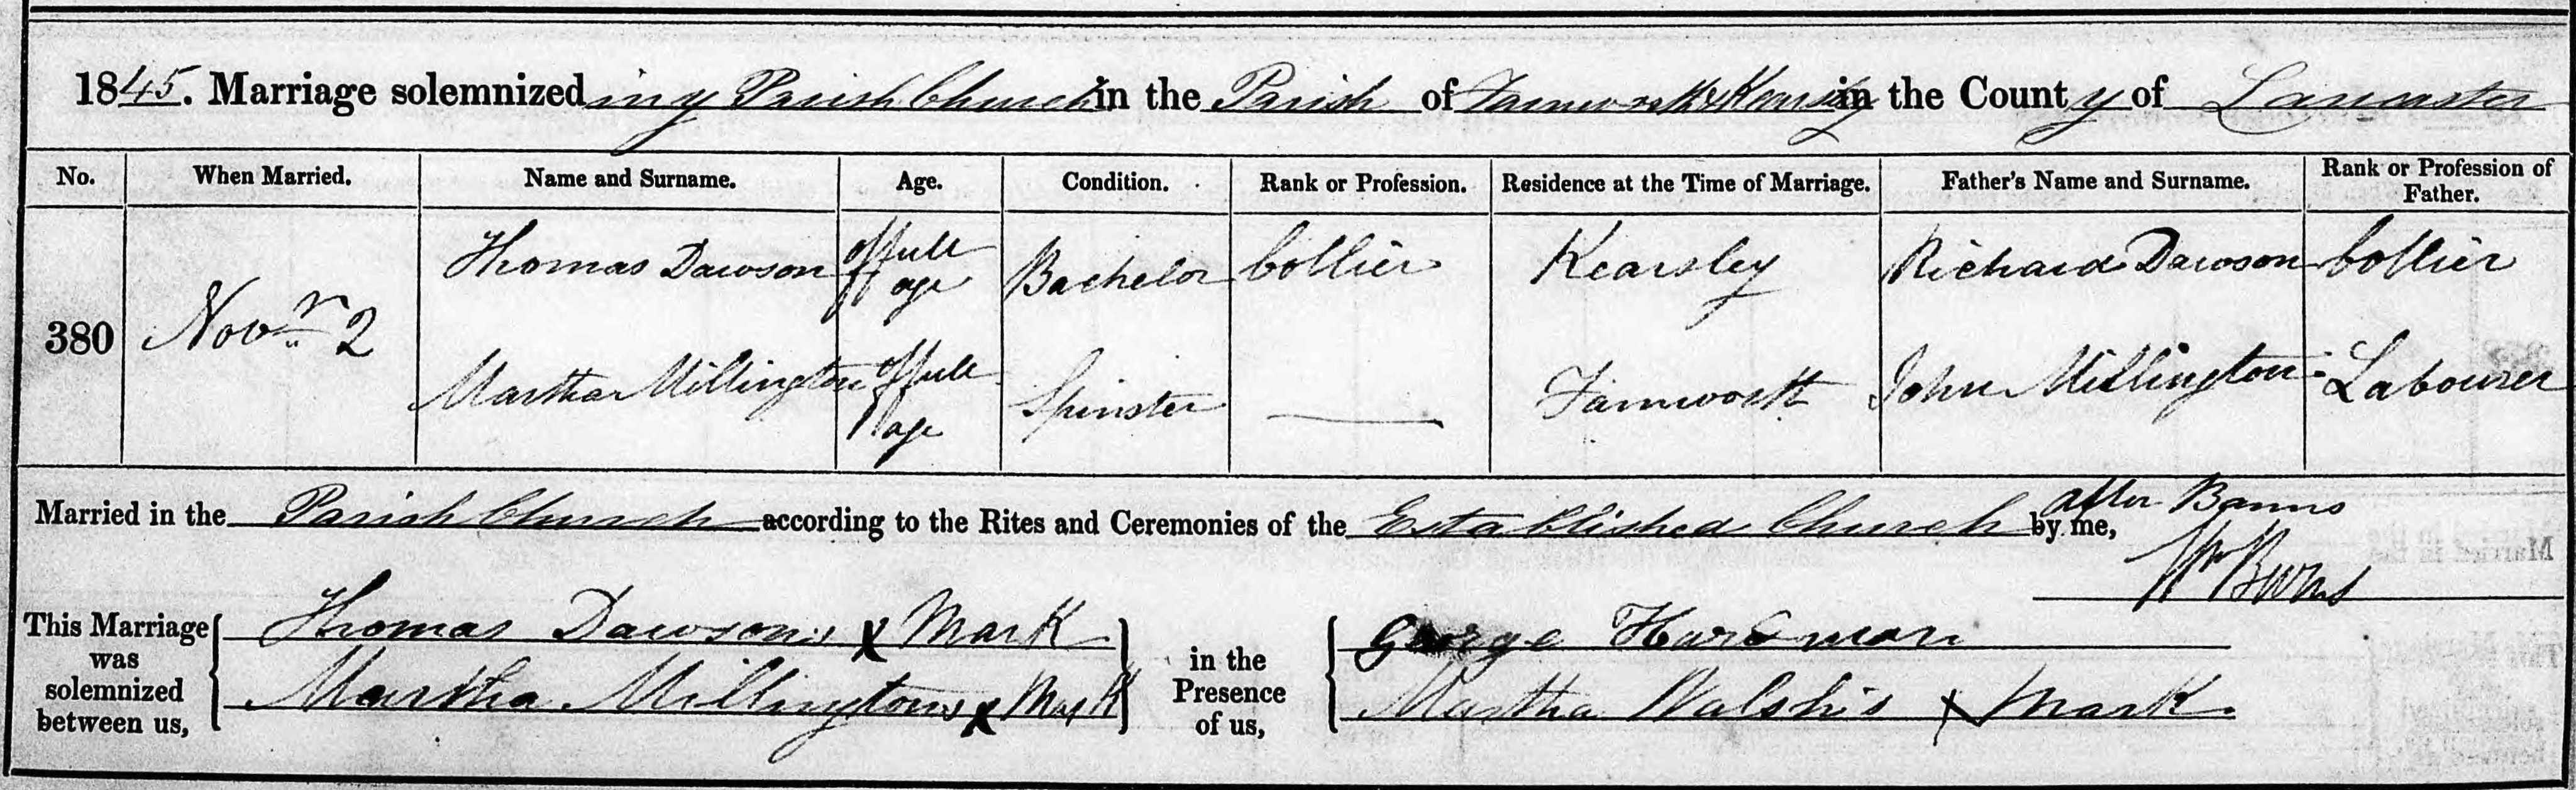 1845. Marriage solemnized in y Parish Church in the Parish of Farnworth & Kearsley in the County of Lancaster
No. When Married. Name and Surname. Age. Condition. Rank or Profession. Residence at the Time of Marriage. Father's Name and Surname. Rank or Profession of Father.
380 Novr 2 Thomas Dawson of full age Bachelor Collier Kearsley Richard Dawson Collier
Martha Millington of full age Spinster Farnworth John Millington Labourer
Married in the Parish Church according to the Rites and Ceremonies of the Established Church by me, after Banns
Wm Burns
This Marriage was solemnized between us, Thomas Dawson's X Mark
Martha Millington's X Mark
in the Presence of us, George Hardman
Martha Walsh's X Mark